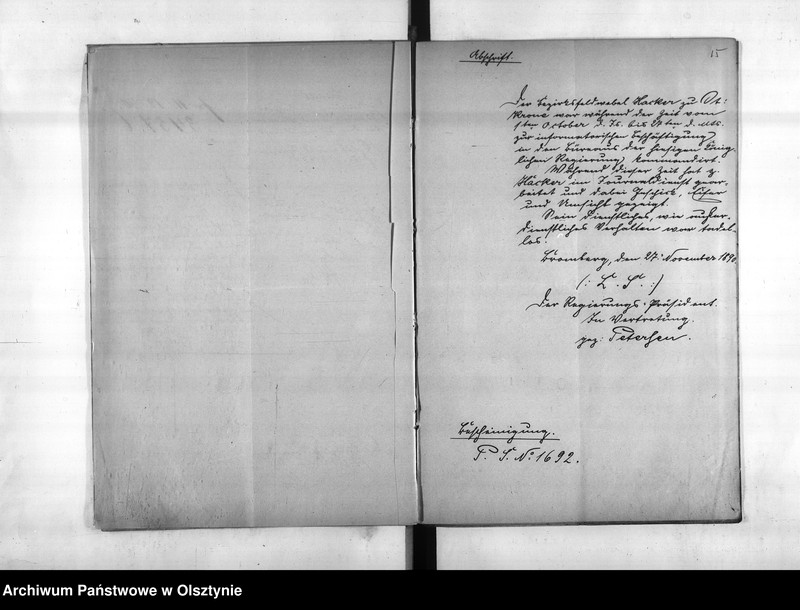 Abschrift.
15
Der Bezirksfeldwebel Hacker zu Dt:
Krone war während der Zeit vom
1ten October d. Js. bis 27ten d. Mts.
zur informatorischen Beschäftigung
in den Büreaus der hiesigen König
lichen Regierung kommandirt.
Während dieser Zeit hat p.
Hacker im Journaldienst gear,
beitet und dabei Geschick, Eifer
und Umsicht gezeigt.
Sein dienstliches, wie außer,
dienstliches Verhalten war tadel,
los.
Bromberg, den 27. November 1890.
(: L. S. :)
Der Regierungs-Präsident.
In Vertretung.
gez: Petersen.
Bescheinigung.
P. S. No 1692.
Archiwum Państwowe w Olsztynie